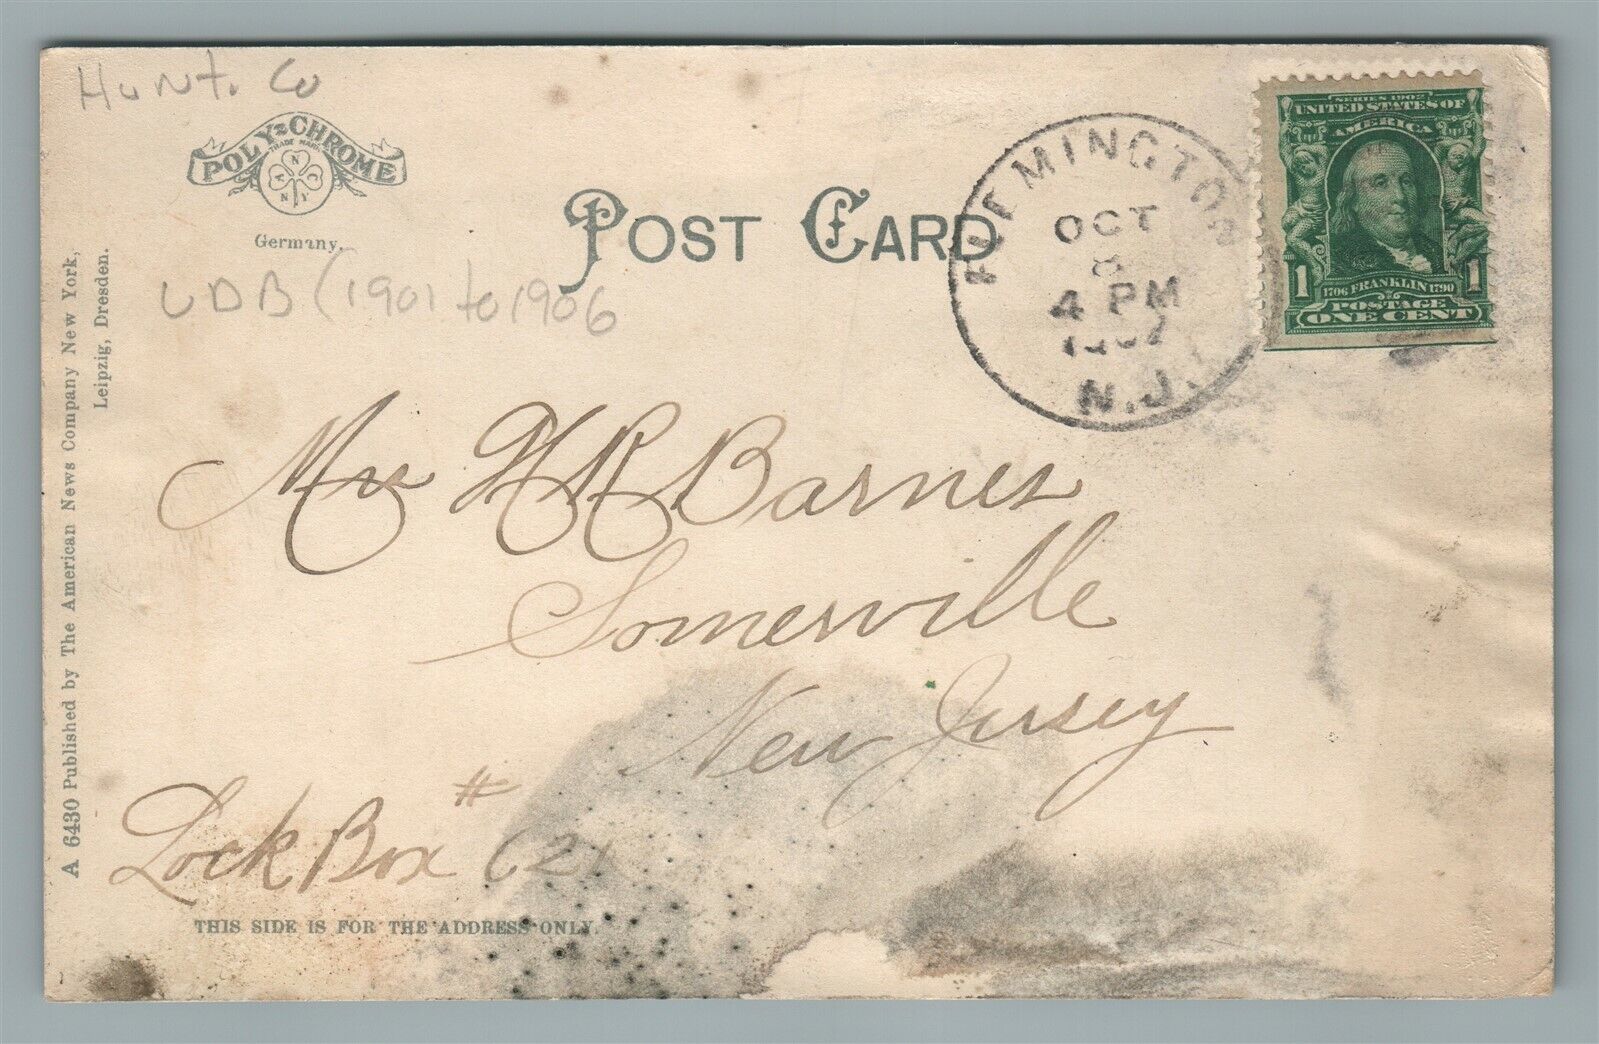 Hunt. Co
POLY-CHROME
TRADE MARK
N
A C
N Y
Germany.
UDB (1901 to 1906
POST CARD
FLEMINGTON
OCT
8
4 PM
N.J.
SERIES 1902
UNITED STATES OF
AMERICA
1 1
1706 FRANKLIN 1790
POSTAGE
ONE CENT
A 6430 Published by The American News Company New York,
Leipzig, Dresden.
Barnes
Somerville
New Jersey
Lock Box #
THIS SIDE IS FOR THE ADDRESS ONLY.